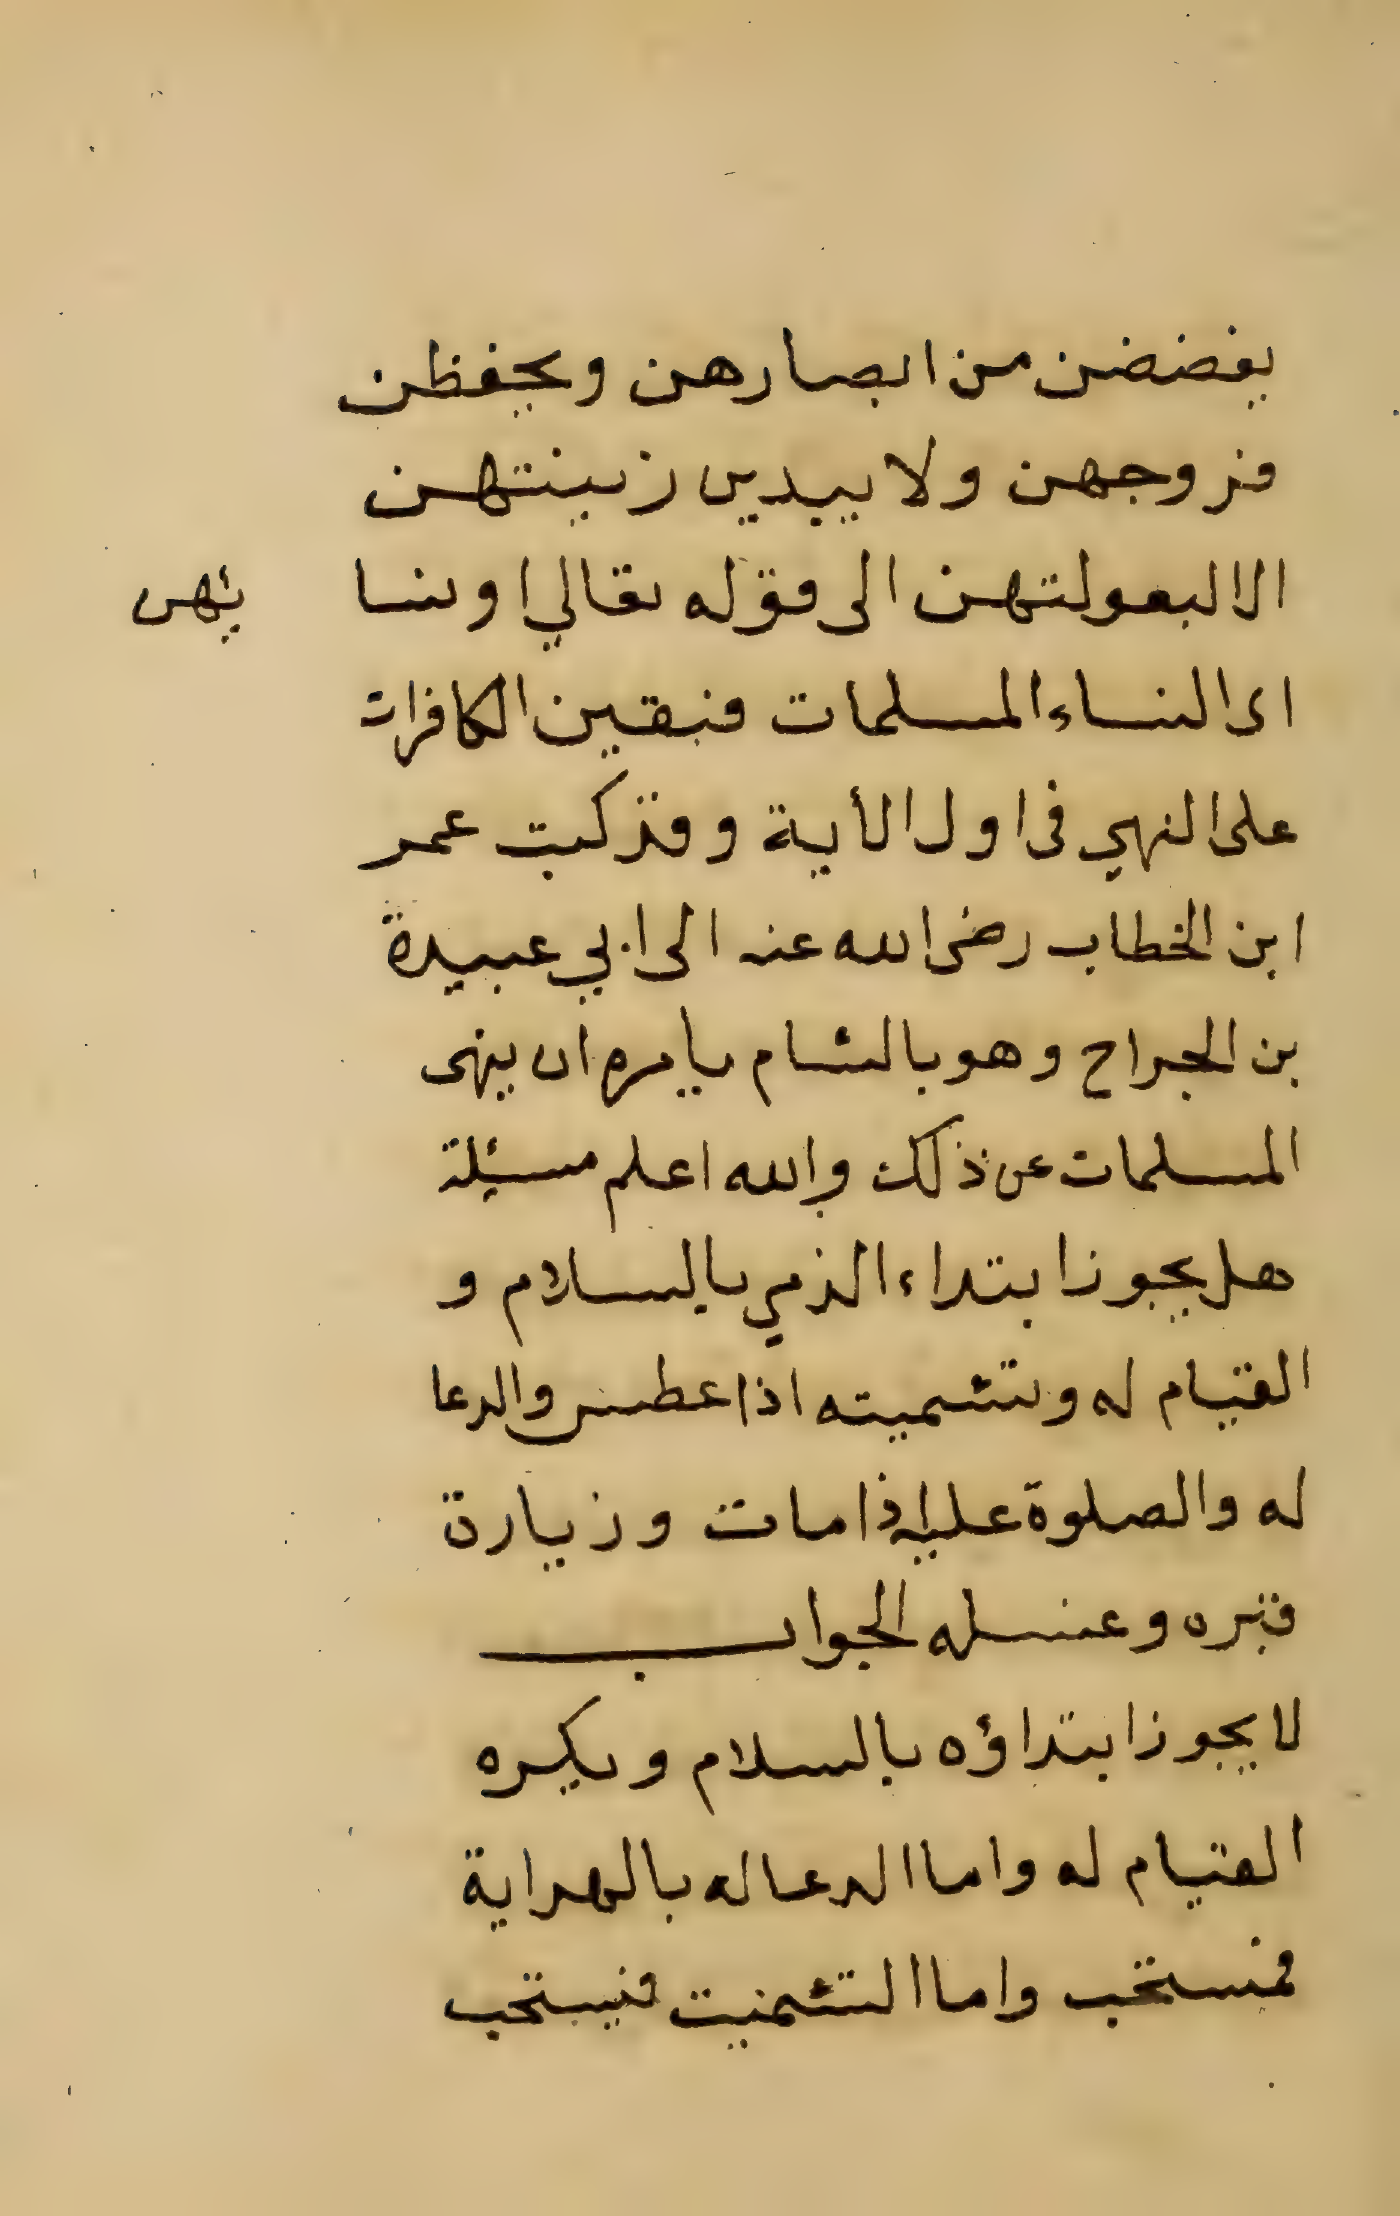 يغضضن من ابصارهن ويحفظن
فروجهن ولا يبدين زينتهن
الا لبعولتهن الى قوله تعالي او نسا ئهن
اى النساء المسلمات فبقين الكافرات
على النهي فى اول الأية وقد كتب عمر
ابن الخطاب رضى الله عنه الى ابي عبيدة
بن الجراح وهو بالشام يأمره ان ينهى
المسلمات عن ذلك والله اعلم مسئلة
هل يجوز ابتداء الذمي بالسلام و
القيام له وتشميته اذا عطس والدعا
له والصلوة عليه اذا مات وزيارة
قبره وغسله الجواب
لا يجوز ابتداؤه بالسلام ويكره
القيام له واما الدعا له بالهداية
فمستحب واما التشميت فيستحب